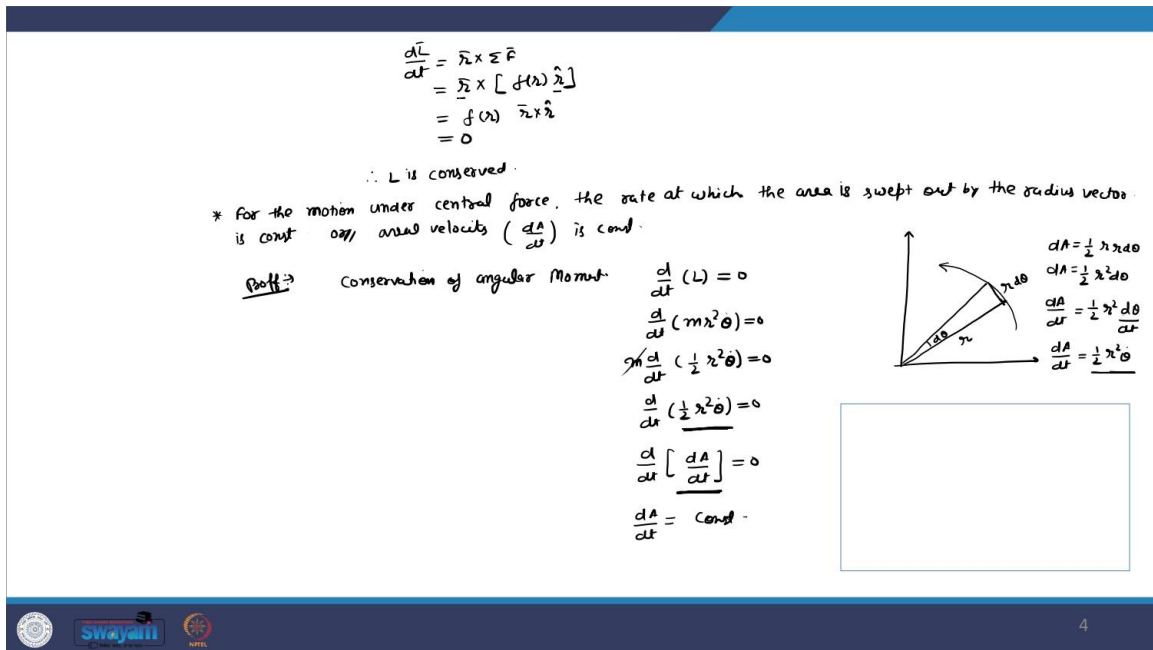 dL̄/dt = r̄ × Σ F̄
= r̄ × [ f(r) r̂ ]
= f(r) r̄ × r̂
= 0
∴ L is conserved.
* For the motion under central force, the rate at which the area is swept out by the radius vector
is const or, areal velocity (dA/dt) is const.
Proff:→ Conservation of angular Moment. d/dt (L) = 0
d/dt (mr²θ̇) = 0
m d/dt (1/2 r²θ̇) = 0
d/dt (1/2 r²θ̇) = 0
d/dt [dA/dt] = 0
dA/dt = Const.
dθ
r
rdθ
dA = 1/2 r rdθ
dA = 1/2 r²dθ
dA/dt = 1/2 r² dθ/dt
dA/dt = 1/2 r²θ̇
swayam
NPTEL
4